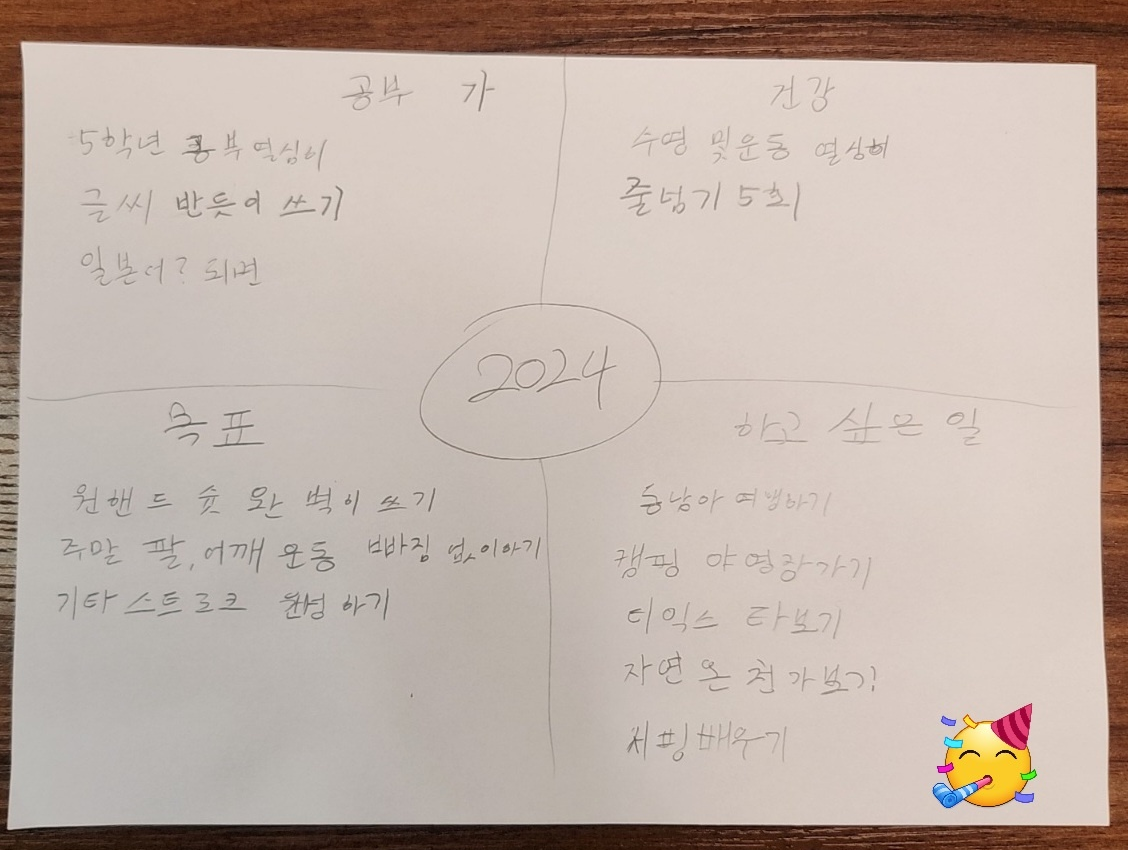 공부 가
5학년 공부 열심이
글씨 반듯이 쓰기
일본어? 되면
건강
수영 및 운동 열심히
줄넘기 5회
2024
목표
원핸드 슛 완벽이 쓰기
주말 팔, 어깨 운동 빠짐 없이하기
기타 스트로크 완성 하기
하고 싶은 일
동남아 여행하기
캠핑 야영장가기
티익스 타보기
자연 온천 가보기!
서핑배우기